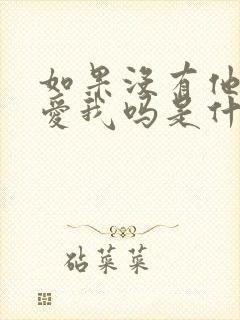 如果没有他
爱我吗是什
砧菜菜